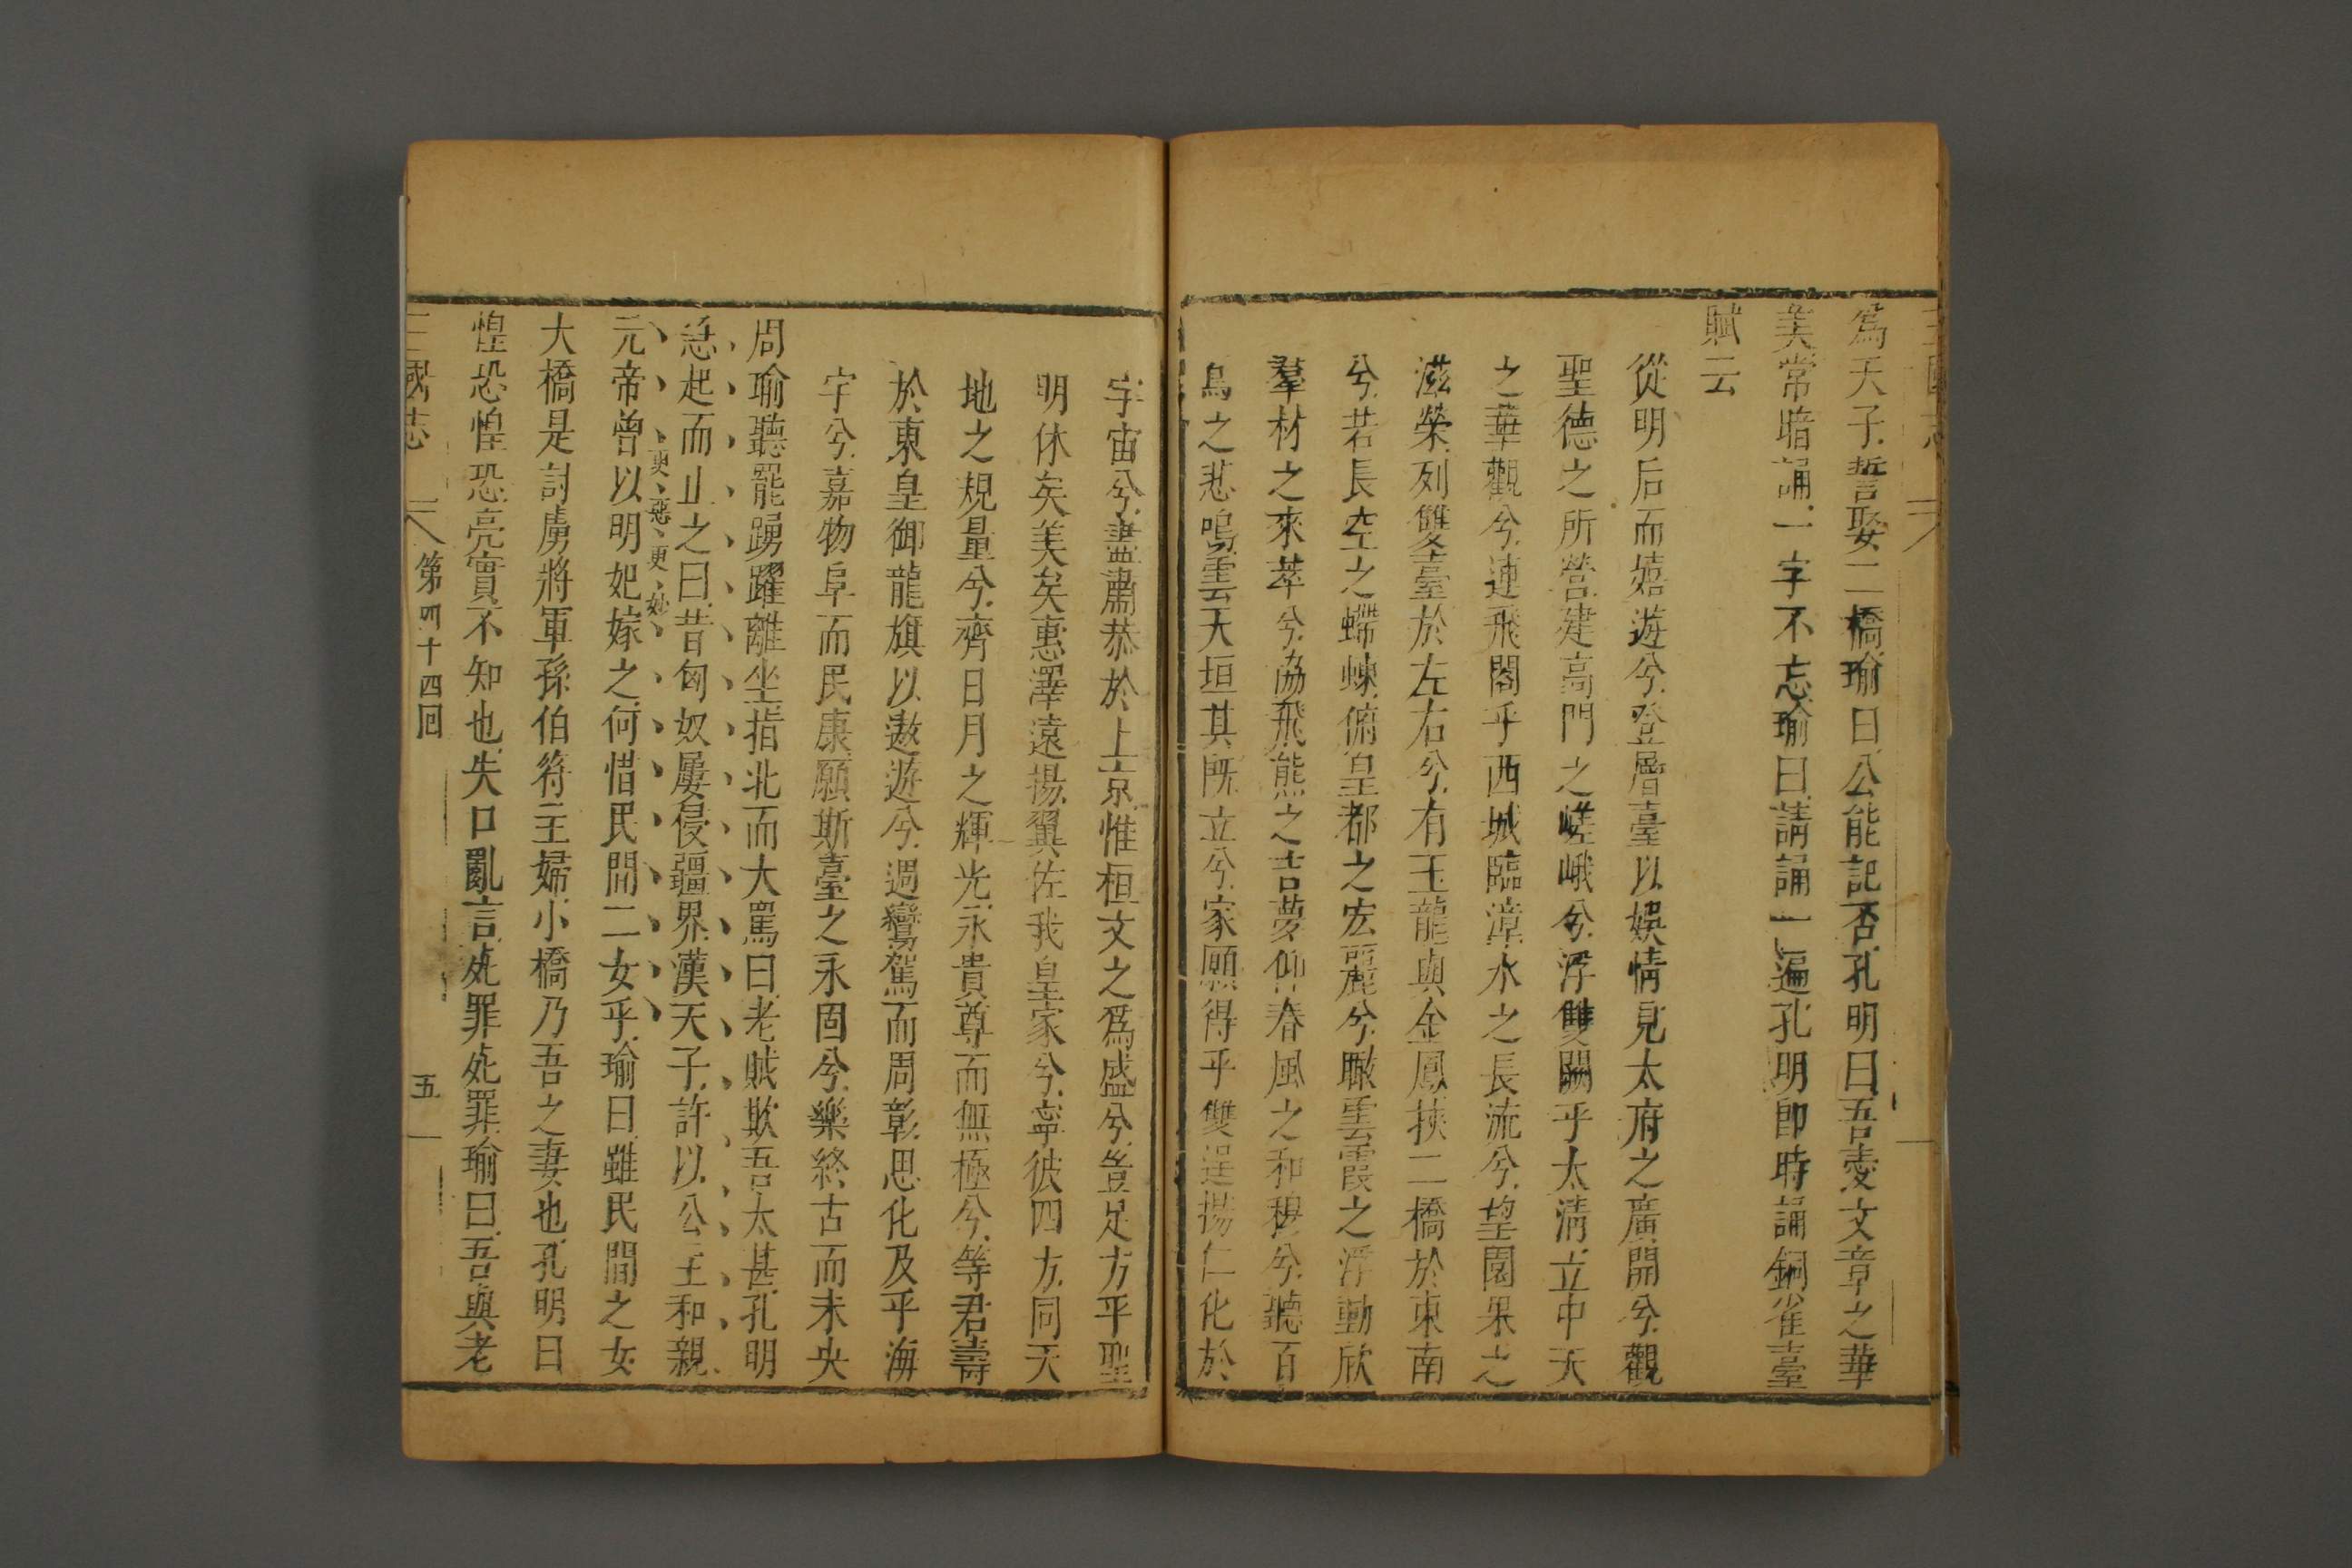 為天子誓娶二橋瑜曰公能記否孔明曰吾愛文章之華
美常暗誦一字不忘瑜曰請誦一遍孔明即時誦銅雀臺
賦云
從明后而嬉遊兮登層臺以娛情見太府之廣開兮觀
聖德之所營建高門之嵯峨兮浮雙闕乎太清立中天
之華觀兮連飛閣乎西城臨漳水之長流兮望園果之
滋榮列雙臺於左右兮有玉龍與金鳳挾二橋於東南
兮若長空之蝃蝀俯皇都之宏麗兮瞰雲霞之浮動欣
羣材之來萃兮協飛熊之吉夢仰春風之和穆兮聽百
鳥之悲鳴雲天垣其既立兮家願得乎雙逞揚仁化於
宇宙兮盡肅恭於上京惟桓文之為盛兮豈足方乎聖
明休矣美矣惠澤遠揚翼佐我皇家兮寧彼四方同天
地之規量兮齊日月之輝光永貴尊而無極兮等君壽
於東皇御龍旗以遨遊兮迴鸞駕而周彰思化及乎海
宇兮嘉物阜而民康願斯臺之永固兮樂終古而未央
周瑜聽罷踴躍離坐指北而大罵曰老賊欺吾太甚孔明
急起而止之曰昔匈奴屢侵疆界漢天子許以公主和親
更惡更妙
元帝曾以明妃嫁之何惜民間二女乎瑜曰雖民間之女
大橋是討虜將軍孫伯符主婦小橋乃吾之妻也孔明曰
惶恐惶恐亮實不知也失口亂言死罪死罪瑜曰吾與老
三國志 第四十四回 五